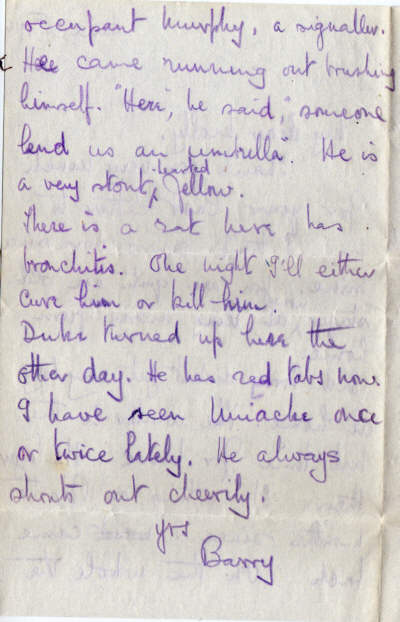 occupant Murphy, a signaller.
He came running out brushing
himself. "Here", he said, "someone
lend us an umbrella". He is
a very stout hearted fellow.
There is a rat here has
bronchitis. One night I'll either
cure him or kill him.
Duke turned up here the
other day. He has red tabs now.
I have seen Uniacke once
or twice lately. He always
shouts out cheerily.
yrs
Barry